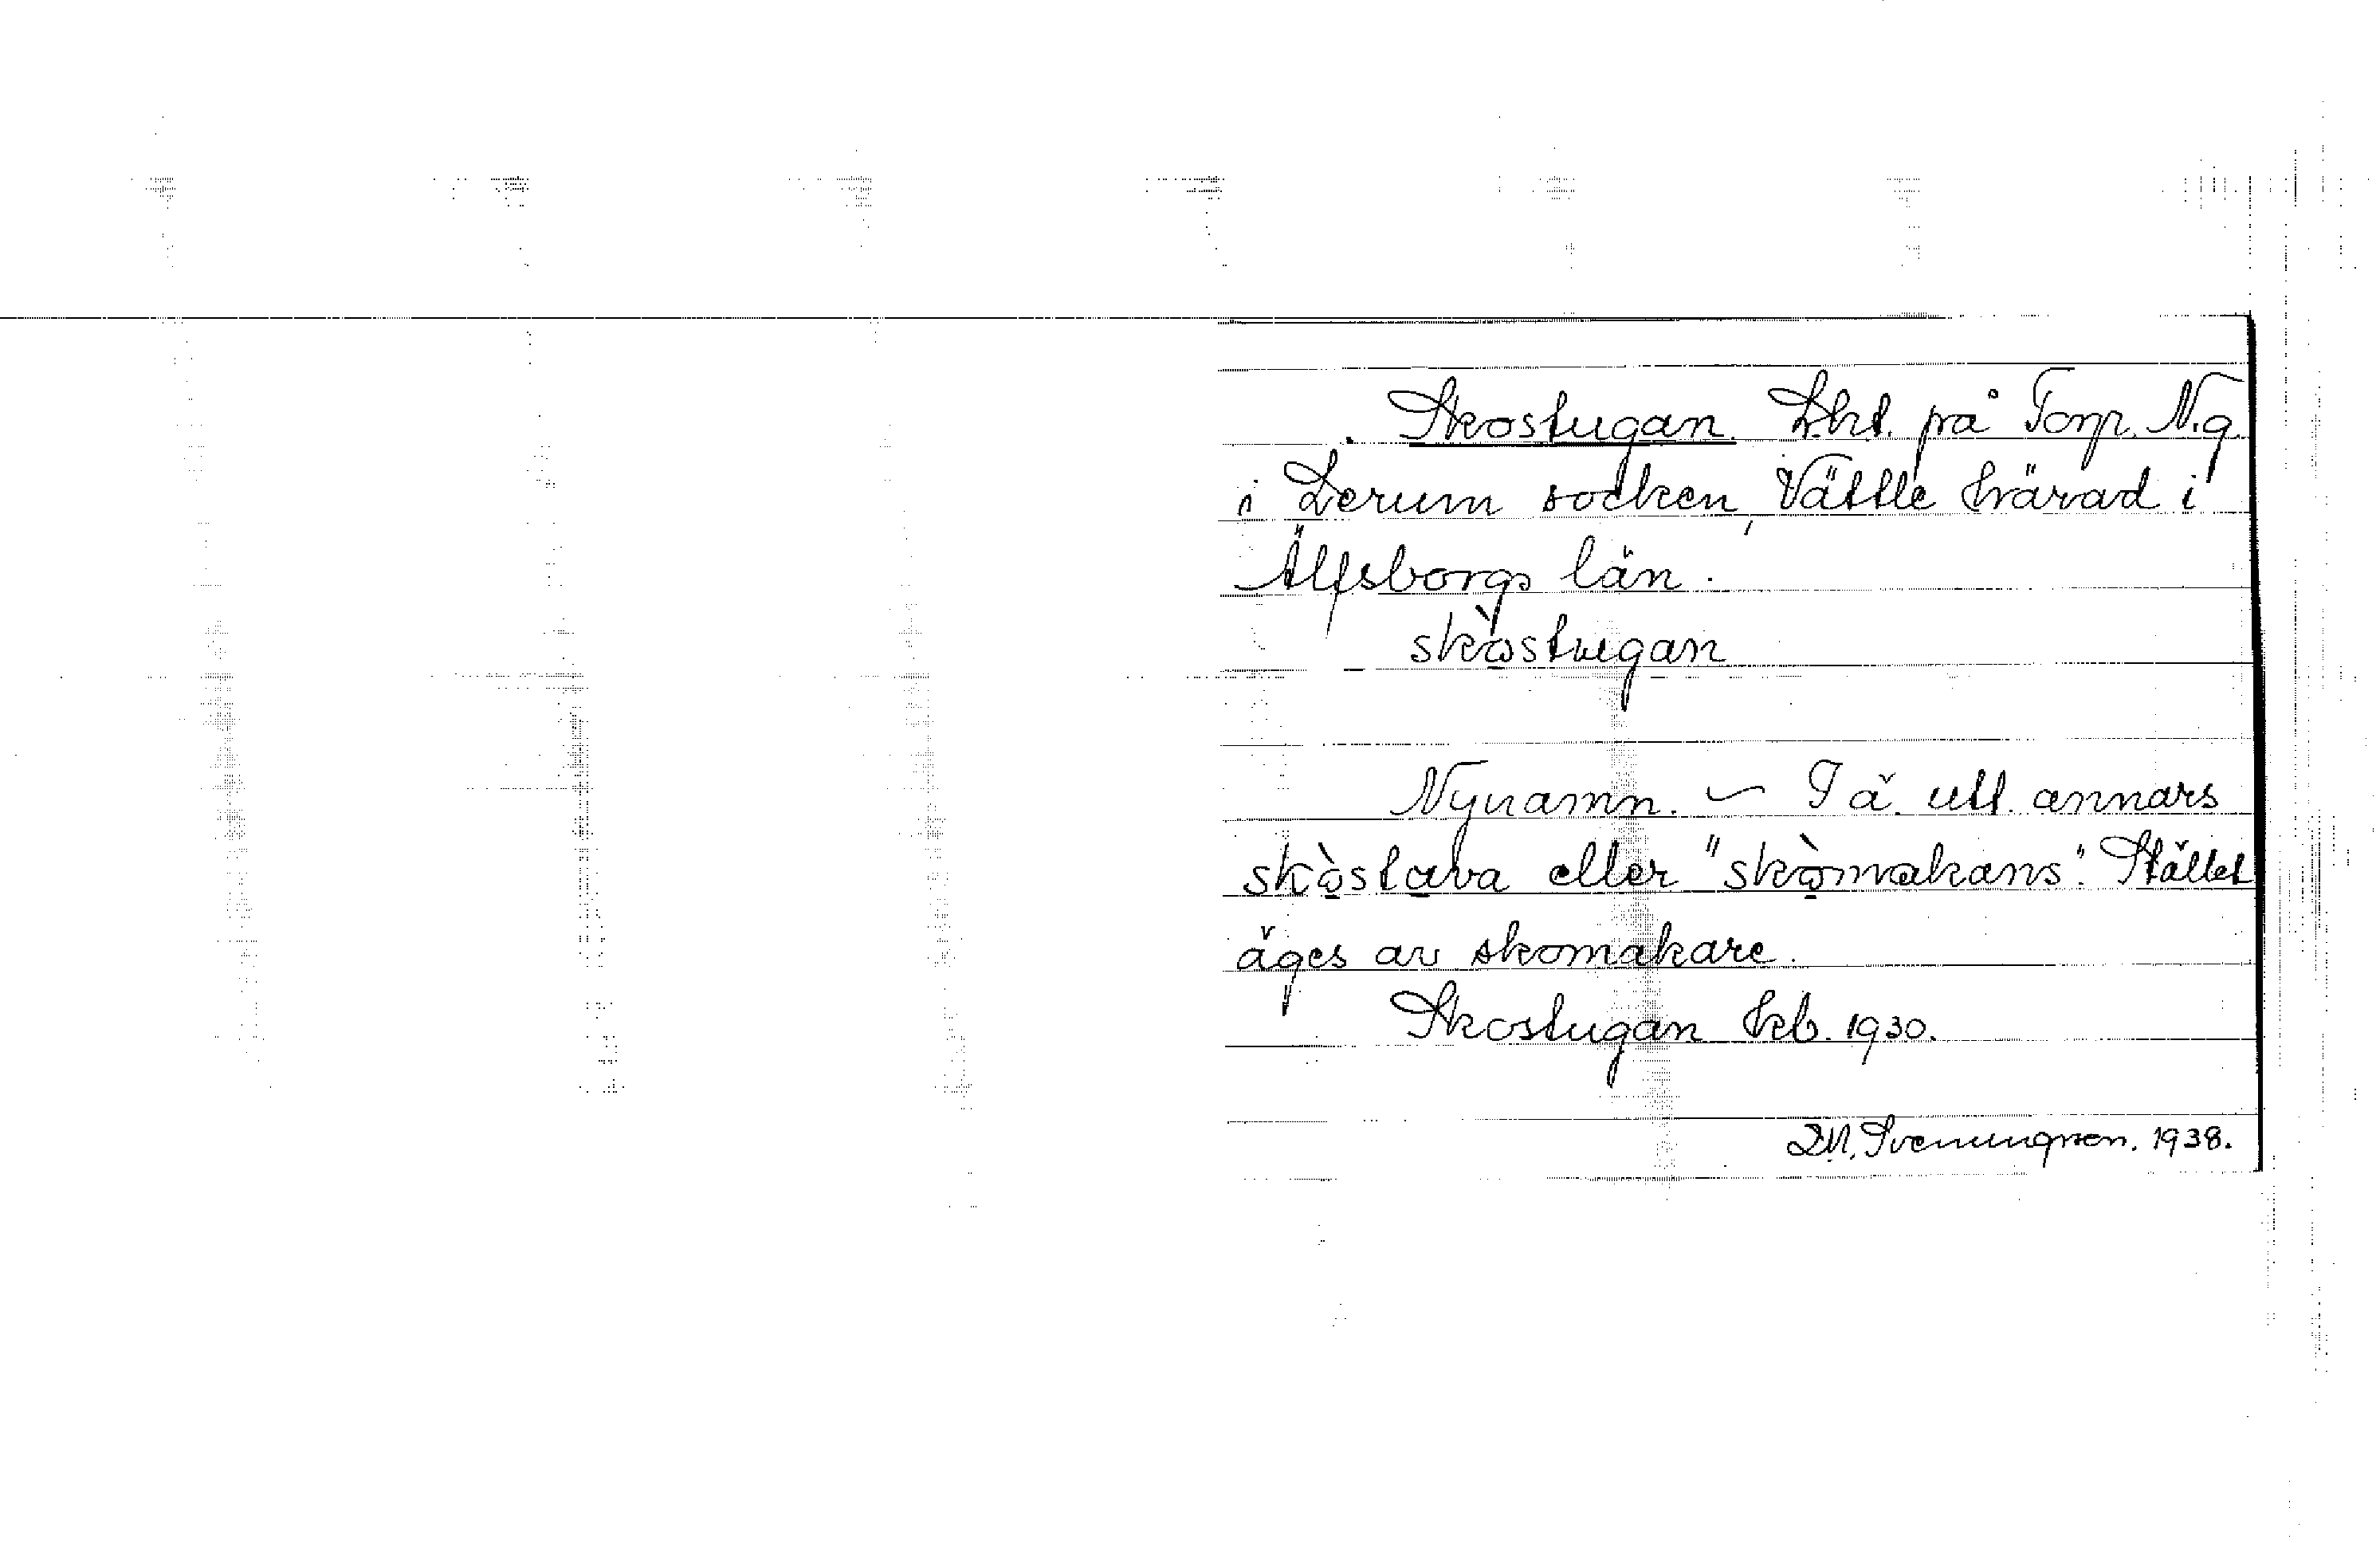 Skostugan. Lht. på Torp. N.g.
i Lerum socken, Vättle härad i
Älfsborgs län.
skòstugan
Nynamn. ~ I ä. utt. annars
skòstava eller "skòmakans". Stället
äges av skomakare.
Skostugan kb. 1930.
D.N. Svenungsson. 1938.